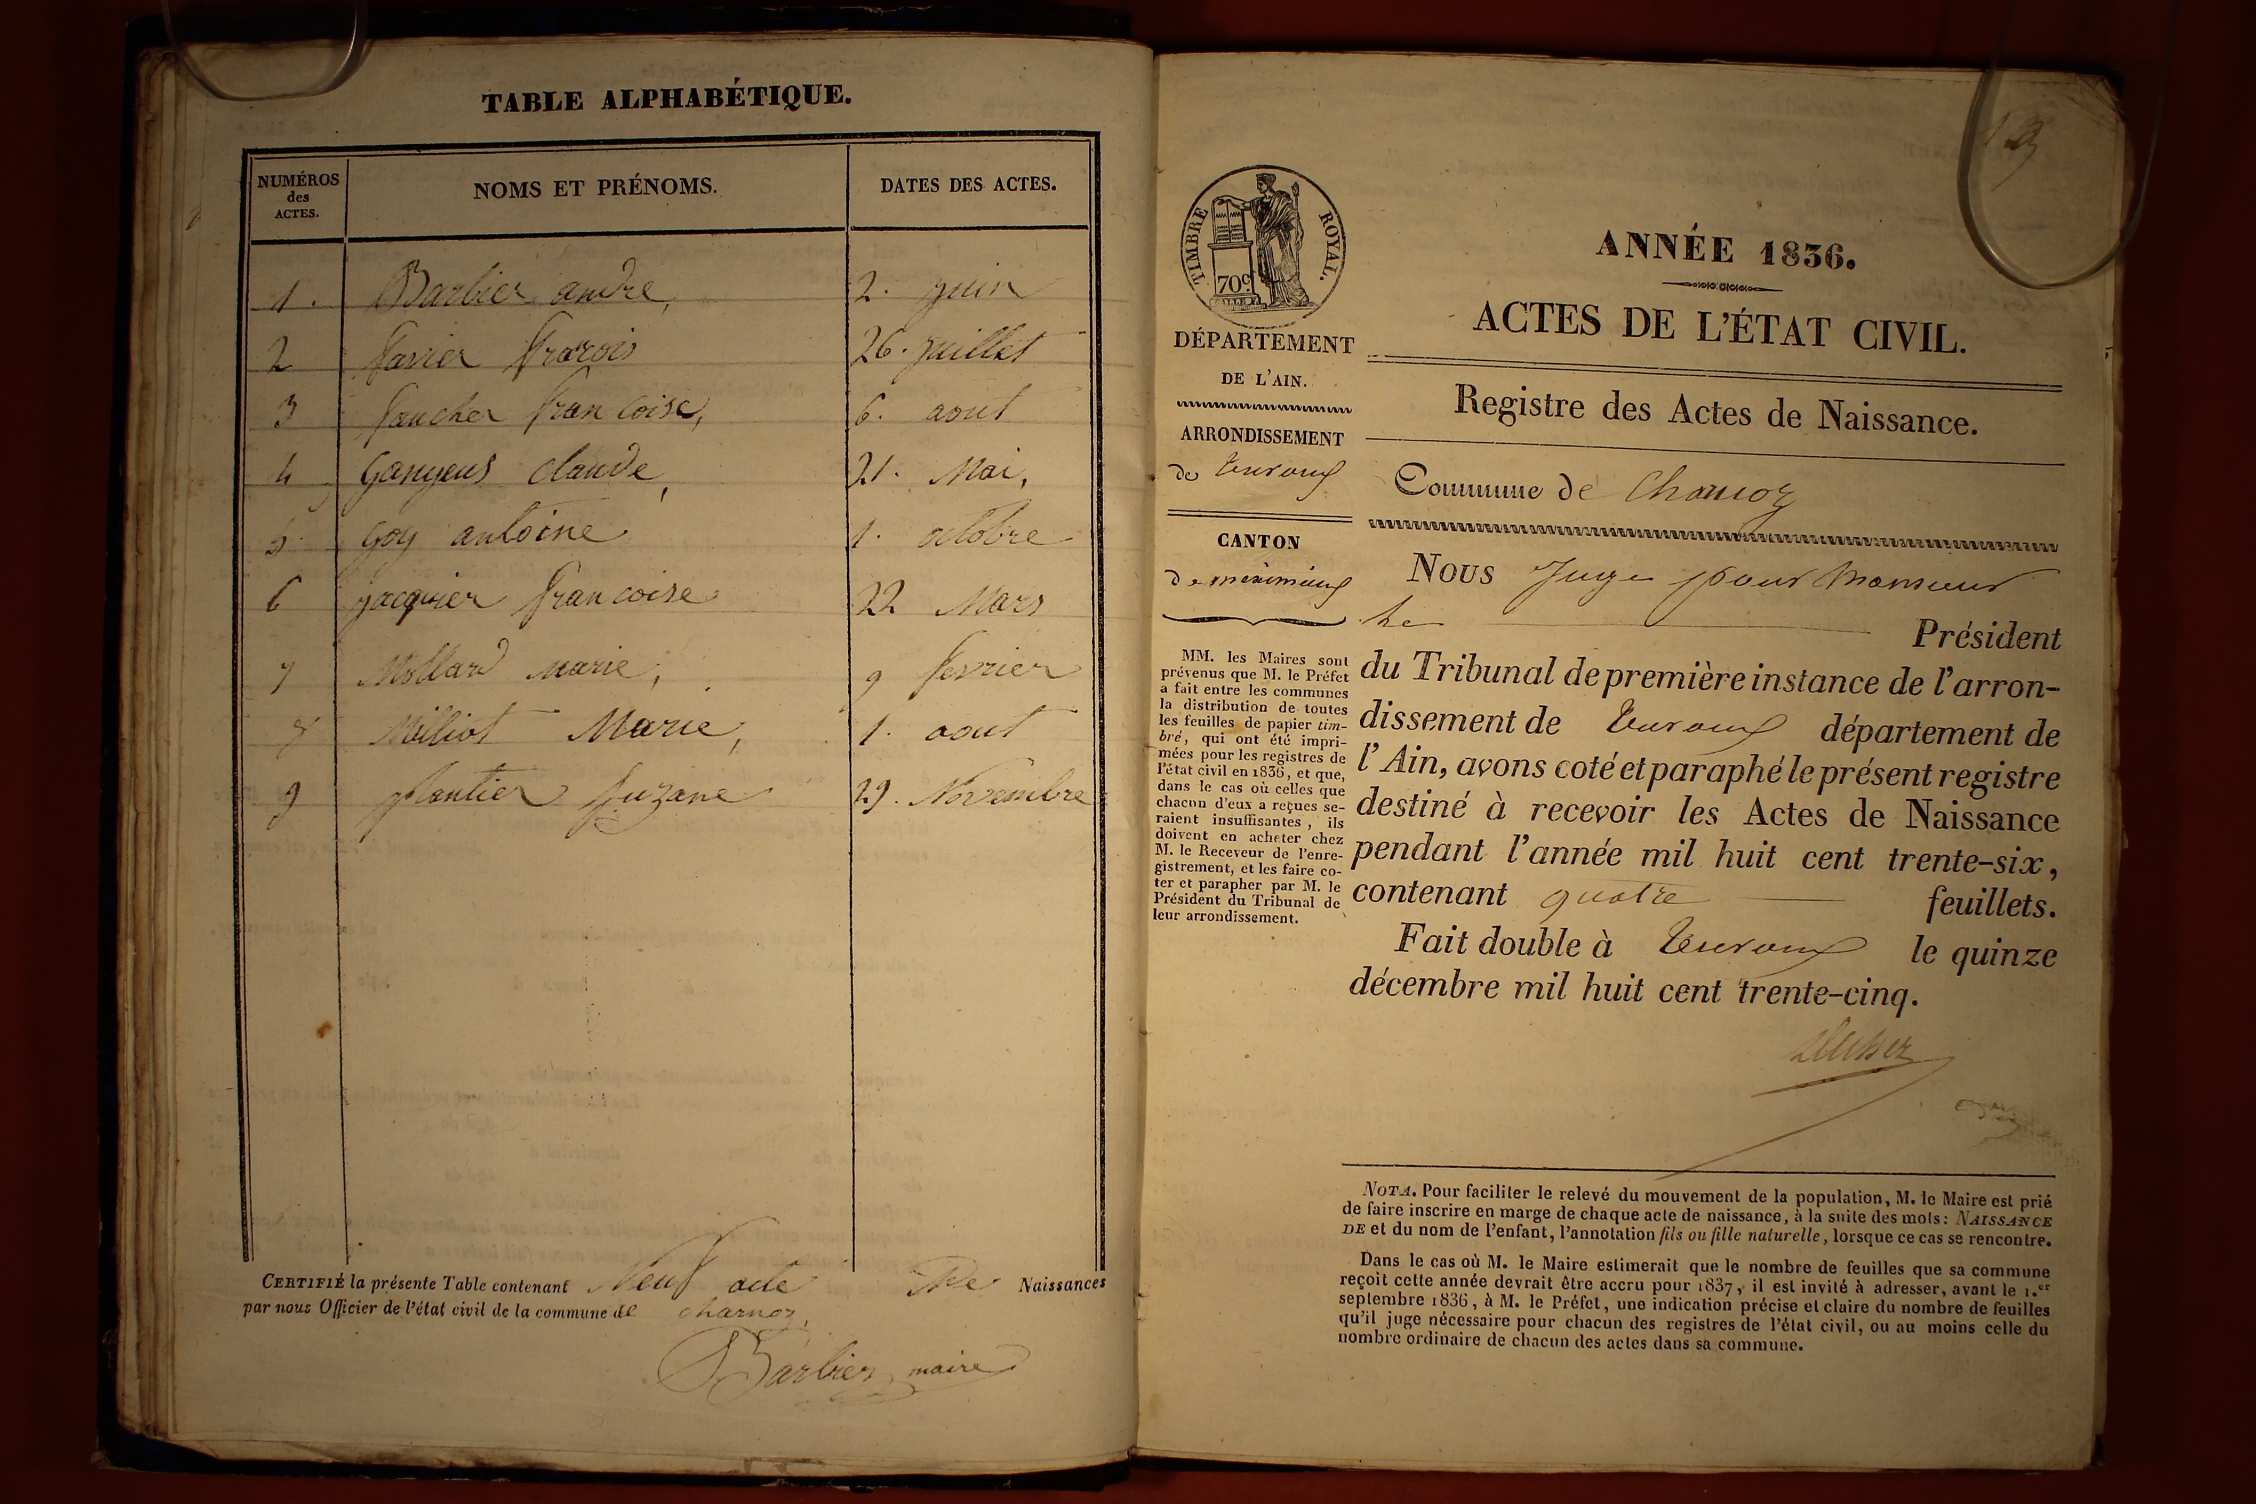 TABLE ALPHABÉTIQUE.
NUMÉROS
des
ACTES.
NOMS ET PRÉNOMS.
DATES DES ACTES.
1. Barbier andre, 2. juin
2 favier 26. juillet
3 faucher francoise, 6. aout
4 claude, 21. Mai,
5 Goy antoine 1. octobre
6 jacquier francoise 22 Mars
7 Mollard marie, 9 fevrier
8 Miliot Marie, 1. aout
9 plantier suzane 29. Novembre
CERTIFIÉ la présente Table contenant Neuf acte De Naissances
par nous Officier de l'état civil de la commune de charnoz,
Barbier maire
TIMBRE ROYAL.
70c
DÉPARTEMENT
DE L'AIN.
ARRONDISSEMENT
de Trevoux
CANTON
de meximieux
MM. les Maires sont
prévenus que M. le Préfet
a fait entre les communes
la distribution de toutes
les feuilles de papier tim-
bré, qui ont été impri-
mées pour les registres de
l'état civil en 1836, et que,
dans le cas où celles que
chacun d'eux a reçues se-
raient insuffisantes, ils
doivent en acheter chez
M. le Receveur de l'enre-
gistrement, et les faire co-
ter et parapher par M. le
Président du Tribunal de
leur arrondissement.
ANNÉE 1836.
ACTES DE L'ÉTAT CIVIL.
Registre des Actes de Naissance.
Commune de Charnoz
NOUS Juge pour Monsieur
Le Président
du Tribunal de première instance de l'arron-
dissement de Trevoux département de
l'Ain, avons coté et paraphé le présent registre
destiné à recevoir les Actes de Naissance
pendant l'année mil huit cent trente-six,
contenant quatre feuillets.
Fait double à Trevoux le quinze
décembre mil huit cent trente-cinq.
NOTA. Pour faciliter le relevé du mouvement de la population, M. le Maire est prié
de faire inscrire en marge de chaque acte de naissance, à la suite des mots: NAISSANCE
DE et du nom de l'enfant, l'annotation fils ou fille naturelle, lorsque ce cas se rencontre.
Dans le cas où M. le Maire estimerait que le nombre de feuilles que sa commune
reçoit cette année devrait être accru pour 1837, il est invité à adresser, avant le 1.er
septembre 1836, à M. le Préfet, une indication précise et claire du nombre de feuilles
qu'il juge nécessaire pour chacun des registres de l'état civil, ou au moins celle du
nombre ordinaire de chacun des actes dans sa commune.